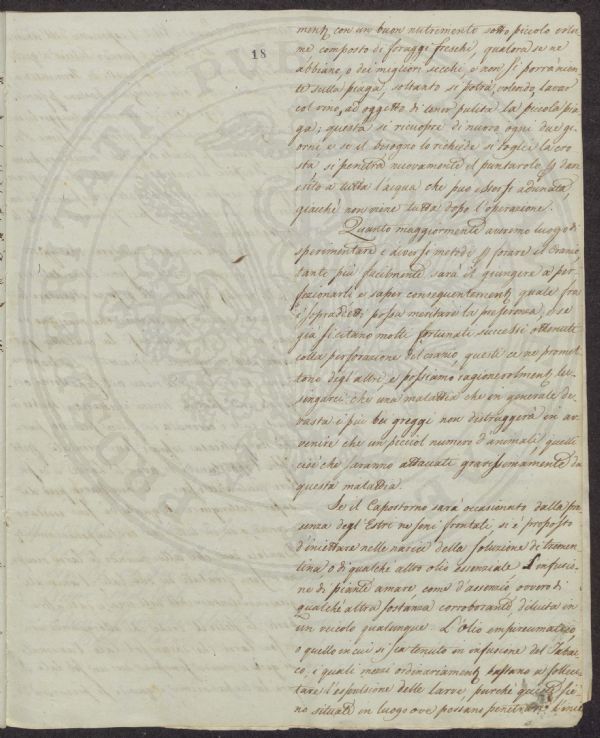 18
mentz con un buon nutrimento sotto piccolo volu-
me composto di foraggi freschi, qualora se ne
abbiano, o dei migliori secchi, e non si porrà nien-
te sulla piaga, soltanto si potrà volendo lavar
col vino, ad oggetto di tener pulita la piccola pia-
ga; questa si ricuopre di nuovo ogni due gi-
orni e se il bisogno lo richiede si toglie la cro-
sta si penetra nuovamente il puntarolo p dar
esito a tutta l'acqua che può essersi adunata
giacchè non viene tutta dopo l'operazione.
Quanto maggiormente avremo luogo di
sperimentare i diversi metodi p forare il cranio
tanto più facilmente sarà il giungere a per-
fezionarli e saper conseguentementz quale fra
i sopraddetti possa meritare la preferenza, e se
già si citano molti fortunati successi ottenuti
colla perforazione del cranio questi ce ne promet-
tono degl'altri e possiamo ragionevolmentz lu-
singarci che una malattia che in generale de-
vasta i più bei greggi non distruggerà in av-
venire che un picciol numero d'animali quelli
cioè che saranno attaccati gravissimamente da
questa malattia.
Se il Capostorno sarà occasionato dalla pre-
senza degl'Estri ne seni frontali si è proposto
d'iniettare nelle narici della soluzione di tremen-
tina, o di qualche altro olio essenziale l'infusio-
ne di piante amare, come d'assenzio, ovvero di
qualche altra sostanza corroborante, diluta in
un veicolo qualunque. L'Olio empireumatico
o quello in cui si sia tenuto in infusione del Tabac-
co, i quali mezzi ordinariamentz bastano a solleci-
tare l'espulsione delle larve purchè queste sie-
no situate in luogo ove possano penetrare